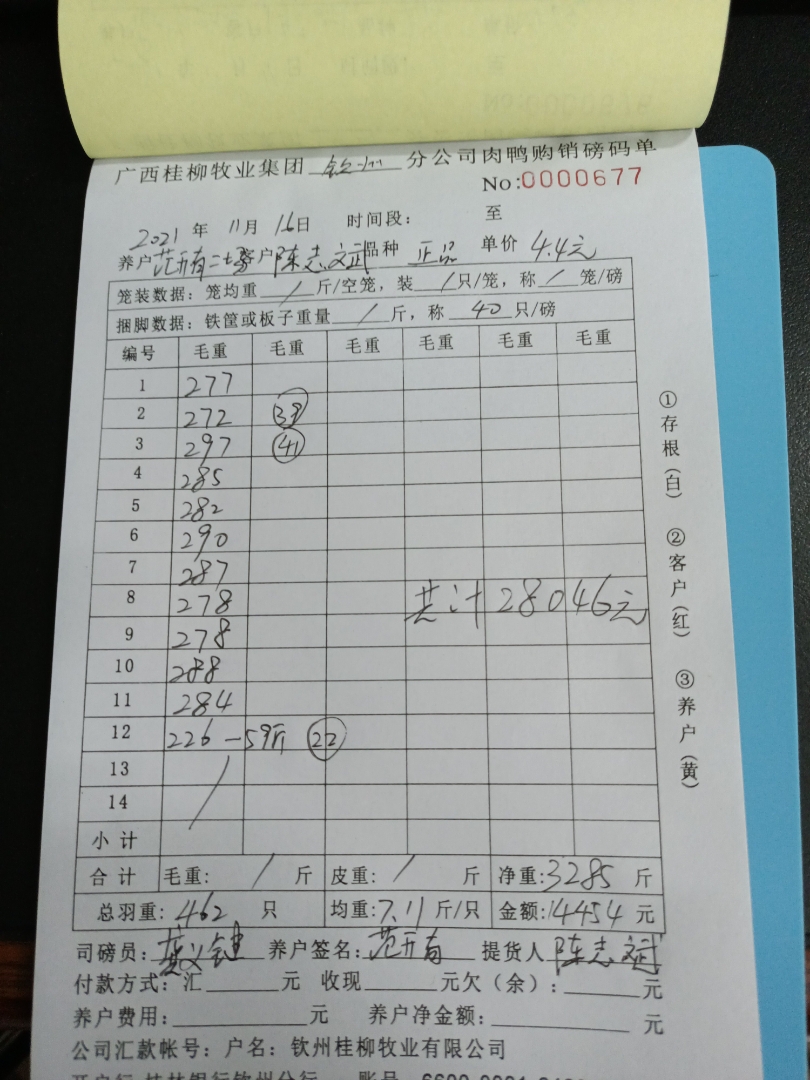 广西桂柳牧业集团 钦州 分公司肉鸭购销磅码单
No:0000677
2021 年 11月 16日 时间段: 至
养户范开有二 客户陈志文斌品种 正品 单价 4.4元
笼装数据：笼均重 / 斤/空笼，装 / 只/笼，称 / 笼/磅
捆脚数据：铁筐或板子重量 / 斤，称 40 只/磅
编号 毛重 毛重 毛重 毛重 毛重 毛重
1 277
2 272 39
3 297 41
4 285
5 282
6 290
7 287
8 278 共计28046元
9 278
10 288
11 284
12 226 -59斤 22
13 /
14
小计
合计 毛重: / 斤 皮重: / 斤 净重:3285 斤
总羽重: 462 只 均重:7.11 斤/只 金额:14454 元
司磅员: 养户签名: 范开有 提货人 陈志文斌
付款方式: 汇 元 收现 元欠（余）: 元
养户费用: 元 养户净金额: 元
公司汇款帐号: 户名: 钦州桂柳牧业有限公司
①存根（白） ②客户（红） ③养户（黄）